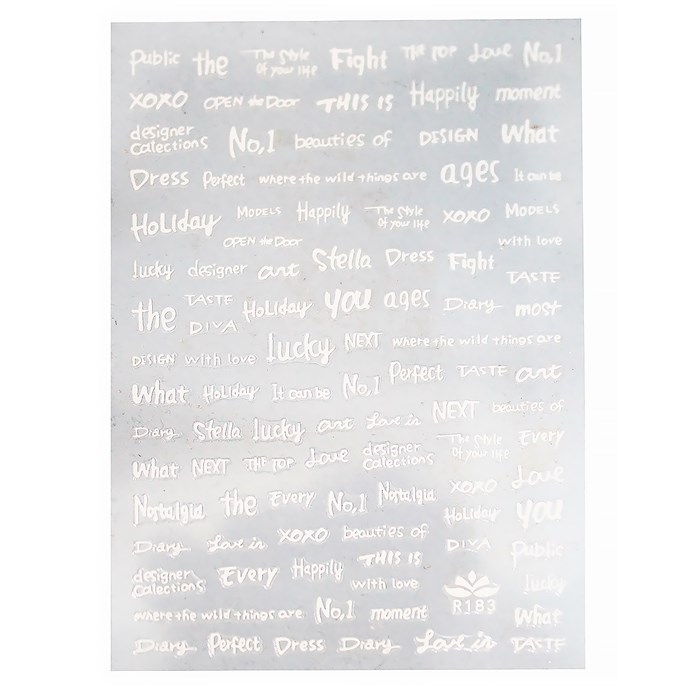 Public the The Style Of your life Fight THE TOP Love No,1
XOXO OPEN the Door THIS IS Happily moment
designer Calections No,1 beauties of DESIGN What
Dress Perfect where the wild things are ages It can be
HoLiday MODELS Happily The Style Of your life XOXO MODELS
OPEN the Door with love
lucky designer art Stella Dress Fight TASTE
the TASTE DIVA HoLiday you ages Diary most
DESIGN with love lucky NEXT where the wild things are
What HoLiday It can be No,1 Perfect TASTE art
Diary Stella lucky art Love in NEXT beauties of
What NEXT THE TOP Love designer Calections The Style Of your life Every
Nostalgia the Every No,1 Nostalgia XOXO Love
HoLiday you
Diary Love in XOXO beauties of DIVA Public
designer Calections Every Happily THIS IS with love lucky
where the wild things are No,1 moment R183 What
Diary Perfect Dress Diary Love in TASTE